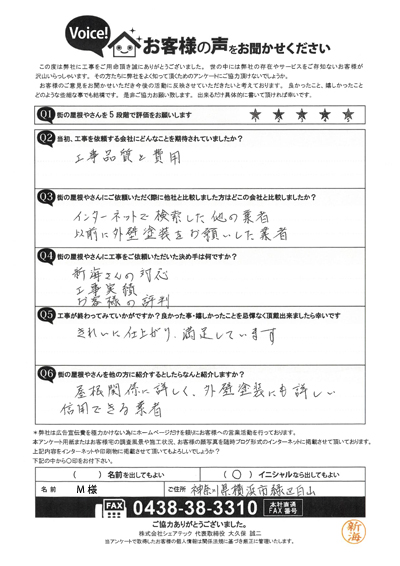 Voice! お客様の声をお聞かせください
この度は弊社に工事をご用命頂き誠にありがとうございました。世の中には弊社の存在やサービスをご存知ないお客様が
沢山いらっしゃいます。その方たちに弊社をよく知って頂くためのアンケートにご協力頂けないでしょうか。
お客様のご意見をお聞かせいただき今後の活動に反映させていただきたいと考えております。良かったこと、嬉しかったこと
どのような些細な事でも結構です。是非ご協力お願い致します。出来るだけ具体的に書いて頂ければ幸いです。
Q1 街の屋根やさんを5段階で評価をお願いします ★ ★ ★ ★ ★
Q2 当初、工事を依頼する会社にどんなことを期待されていましたか?
工事品質と費用
Q3 街の屋根やさんにご依頼いただく際に他社と比較しました方はどこの会社と比較しましたか?
インターネットで検索した他の業者
以前に外壁塗装をお願いした業者
Q4 街の屋根やさんに工事をご依頼いただいた決め手は何ですか?
新海さんの対応
工事実績
お客様の評判
Q5 工事が終わってみていかがですか?良かった事・嬉しかったことを忌憚なく頂戴出来ましたら幸いです
きれいに仕上がり、満足しています
Q6 街の屋根やさんを他の方に紹介するとしたらなんと紹介しますか?
屋根関係に詳しく、外壁塗装にも詳しい
信用できる業者
*弊社は広告宣伝費を極力かけない為にホームページだけを頼りにお客様への営業活動を行っております。
本アンケート用紙またはお客様宅の調査風景や施工状況、お客様の顔写真を随時ブログ形式のインターネットに掲載させて頂いております。
上記内容をインターネットや印刷物に掲載させて頂いてもよろしいでしょうか?
下記の中から〇印をお付下さい。
( ) 名前を出してもよい ( ○ ) イニシャルなら出してもよい
名前 M 様 ご住所 神奈川県横浜市緑区白山
FAX 0438-38-3310 本社直通 FAX番号
ご協力ありがとうございました。
株式会社シェアテック 代表取締役 大久保 誠二
当アンケートで取得したお客様の個人情報は関係法規に基づき厳正に管理いたします。
新海